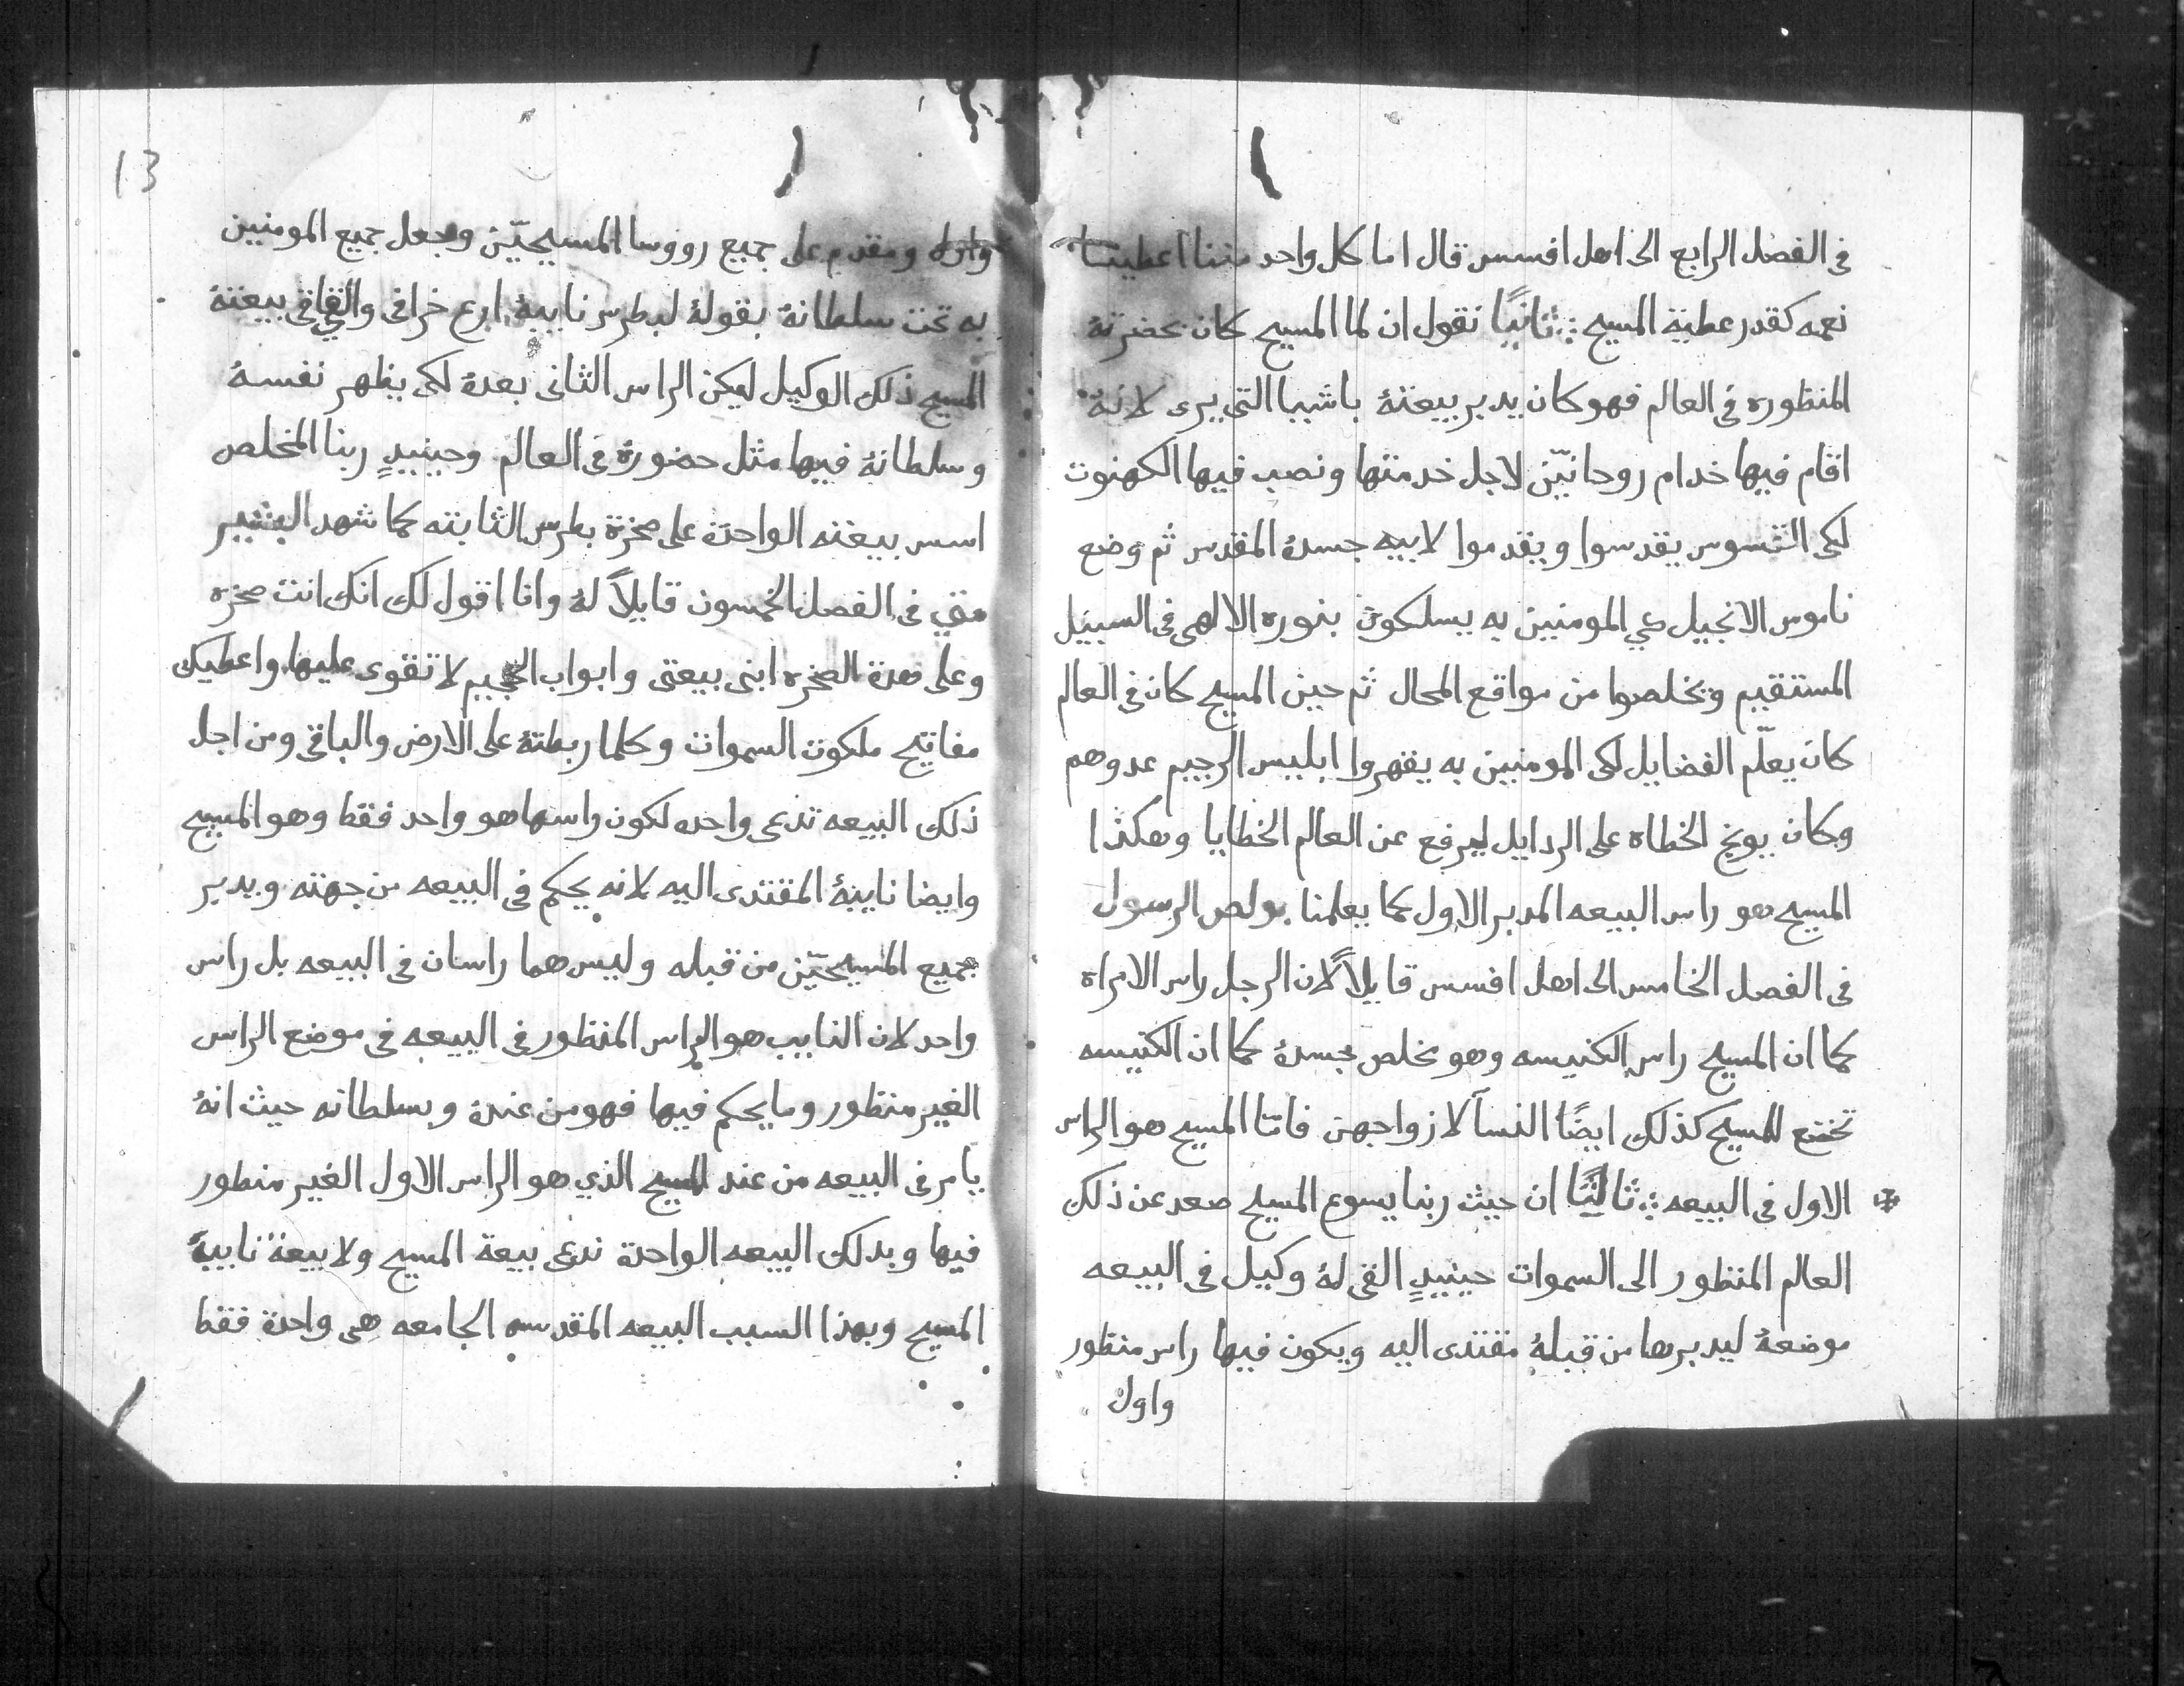 في الفصل الرابع الى اهل افسس قال اما كل واحد مننا اعطينا
نعمه كقدر عطية المسيح ∴ ثانيًا نقول ان لما المسيح كان بحضرتهُ
المنظوره في العالم فهو كان يدبر بيعتهُ باشيا التى يرى لانهُ
اقام فيها خدام روحانيّن لاجل خدمتها ونصب فيها الكهنوت
لكى القسوس يقدسوا ويقدموا لابيه جسدهُ المقدس ثم وضع
ناموس الانجيل كي المومنين به يسلكون بنوره الالهى فى السبيل
المستقيم ويخلصوا من مواقع المحال ثم حين المسيح كان في العالم
كان يعلّم الفضايل لكى المومنين به يقهروا ابليس الرجيم عدوهم
وكان يوبخ الخطاه على الردايل ليرفع عن العالم الخطايا وهكذا
المسيح هو راس البيعه المدبر الاول كما يعلمنا بولص الرسول
فى الفصل الخامس الى اهل افسس قايلاً لان الرجل راس الامراه
كما ان المسيح راس الكنيسه وهو مخلص جسدهُ كما ان الكنيسه
تخضع للمسيح كذلك ايضًا النسآ لازواجهن فامّا المسيح هو الراس
الاول فى البيعه ∴ ثالثًا ان حيث ربنا يسوع المسيح صعد عن ذلك
العالم المنظور الى السموات حينيدٍ القى لهُ وكيل فى البيعه
موضعهُ ليدبرها من قبلهُ مقتدى اليه ويكون فيها راس منظور
واول
13
واول ومقدم على جميع رووسا المسيحيّن وجعل جميع المومنين
به تحت سلطانهُ بقولهُ لبطرس نايبهُ ارع خرافى والقى فى بيعتهُ
المسيح ذلك الوكيل ليكن الراس الثانى بعدهُ لكى يظهر نفسهُ
وسلطانهُ فيها مثل حضورهُ فى العالم وحينيدٍ ربنا المخلص
اسس بيعته الواحدة على صخرة بطرس الثابته كما شهد البشير
متي فى الفصل الخمسون قايلاً لهُ وانا اقول لك انك انت صخره
وعلى هذهَ الصخره ابنى بيعتى وابواب الجحيم لا تقوى عليها واعطيك
مفاتيح ملكوت السموات وكلما ربطتهُ على الارض والباقى ومن اجل
ذلك البيعه تدعى واحده لكون راسها هو واحد فقط وهو المسيح
وايضا نايبهُ المقتدى اليه لانه يحكم فى البيعه من جهته ويدبر
جميع المسيحيّن من قبله وليس هما راسان فى البيعه بل راس
واحد لان النايب هو الراس المنظور فى البيعه فى موضع الراس
الغير منظور وما يحكم فيها فهو من عندهُ وبسلطانه حيث انهُ
يامر فى البيعه من عند المسيح الذي هو الراس الاول الغير منطور
فيها وبدلك البيعه الواحدة تدعى بيعة المسيح ولا بيعة نايب
المسيح وبهذا السبب البيعه المقدسه الجامعه هى واحدة فقط